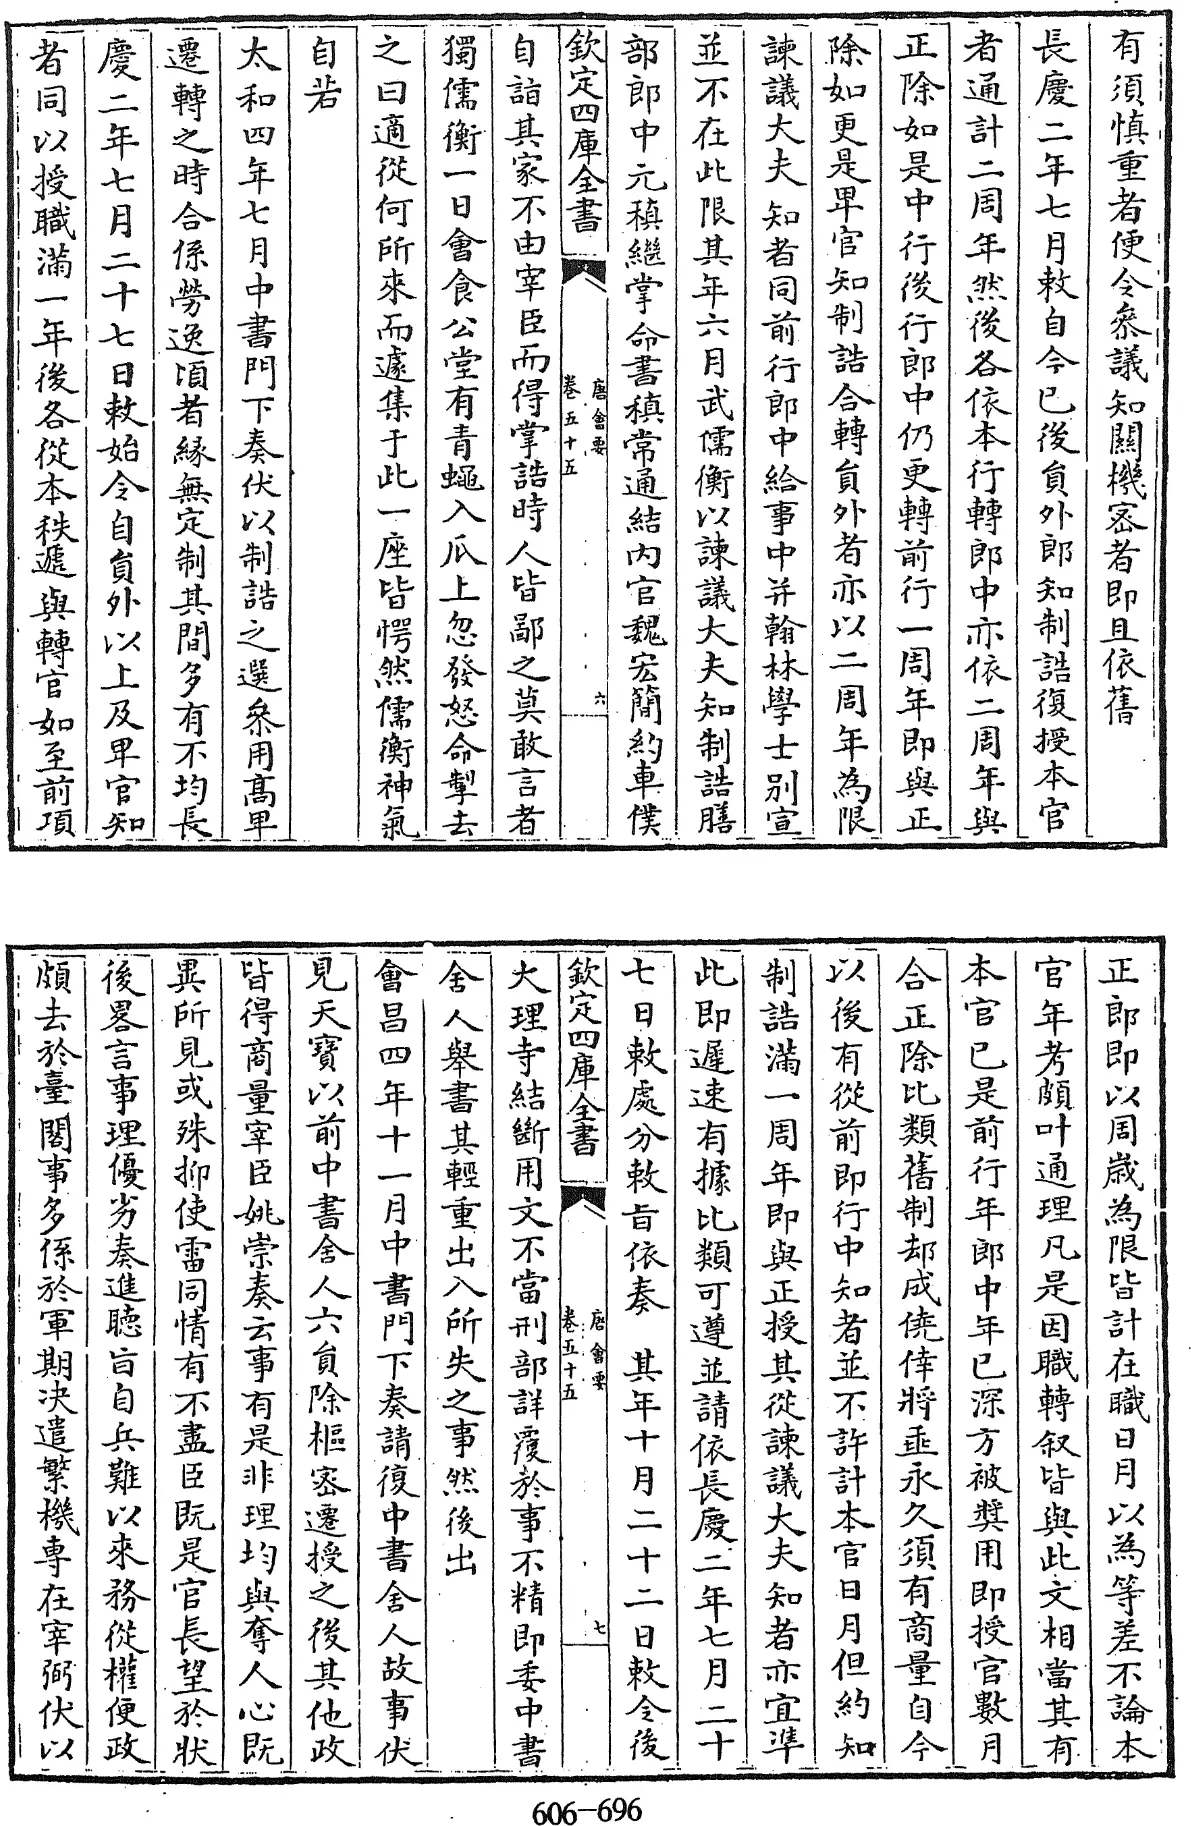 有須慎重者便令叅議知關機宻者即且依舊
長慶二年七月敕自今已後員外郎知制誥復授本官
者通計二周年然後各依本行轉郎中亦依二周年與
正除如是中行後行郎中仍更轉前行一周年即與正
除如更是卑官知制誥合轉員外者亦以二周年為限
諫議大夫知者同前行郎中給事中并翰林學士别宣
並不在此限其年六月武儒衡以諫議大夫知制誥膳
部郎中元稹繼掌命書稹常通結内官魏宏簡約車僕
欽定四庫全書
唐會要
卷五十五
六
自詣其家不由宰臣而得掌誥時人皆鄙之莫敢言者
獨儒衡一日會食公堂有青蠅入瓜上忽發怒命掣去
之曰適從何所來而遽集于此一座皆愕然儒衡神氣
自若
太和四年七月中書門下奏伏以制誥之選叅用髙卑
遷轉之時合係勞逸頃者縁無定制其間多有不均長
慶二年七月二十七日敕始令自員外以上及卑官知
者同以授職滿一年後各從本秩遞與轉官如至前項
正郎即以周嵗為限皆計在職日月以為等差不論本
官年考頗叶通理凡是因職轉叙皆與此文相當其有
本官已是前行年郎中年已深方被奬用即授官數月
合正除比類舊制却成僥倖將垂永久須有商量自今
以後有從前即行中知者並不許計本官日月但約知
制誥滿一周年即與正授其從諫議大夫知者亦宜準
此即遲速有據比類可遵並請依長慶二年七月二十
七日敕處分敕㫖依奏　其年十月二十二日敕令後
欽定四庫全書
唐會要
卷五十五
七
大理寺結斷用文不當刑部詳覆於事不精即委中書
舍人舉書其輕重出入所失之事然後出
會昌四年十一月中書門下奏請復中書舍人故事伏
見天寶以前中書舍人六員除樞宻遷授之後其他政
皆得商量宰臣姚崇奏云事有是非理均與奪人心既
異所見或殊抑使雷同情有不盡臣既是官長望於狀
後畧言事理優劣奏進聽㫖自兵難以來務從權便政
頗去於臺閣事多係於軍期决遣繁機專在宰弼伏以
606-696